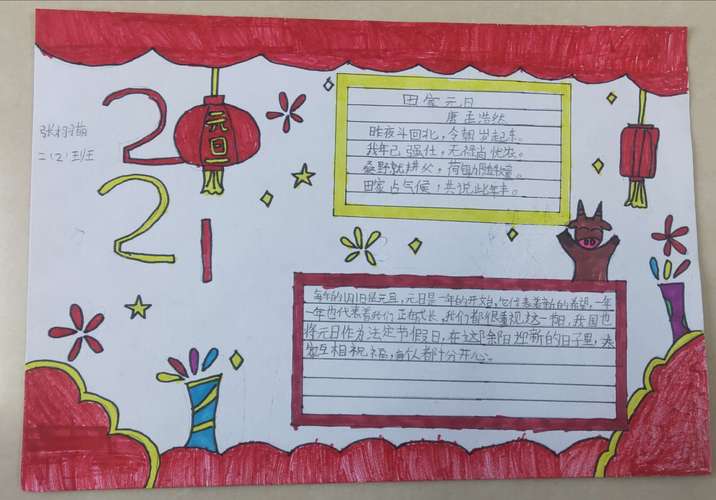 2
元旦
2 1
二(2)班
田家元日
唐 孟浩然
昨夜斗回北,今朝岁起东。
我年已强仕,无禄尚忧农。
桑野就耕父,荷锄随牧童。
田家占气候,共说此年丰。
每年的1月1日是元旦,元旦是一年的开始,它代表着新的希望,一年
一年也代表着我们正在成长,我们都很重视这一,我国也
将元旦作为法定节假日,在这辞旧迎新的日子里,大
家互相祝福,每个人都十分开心。